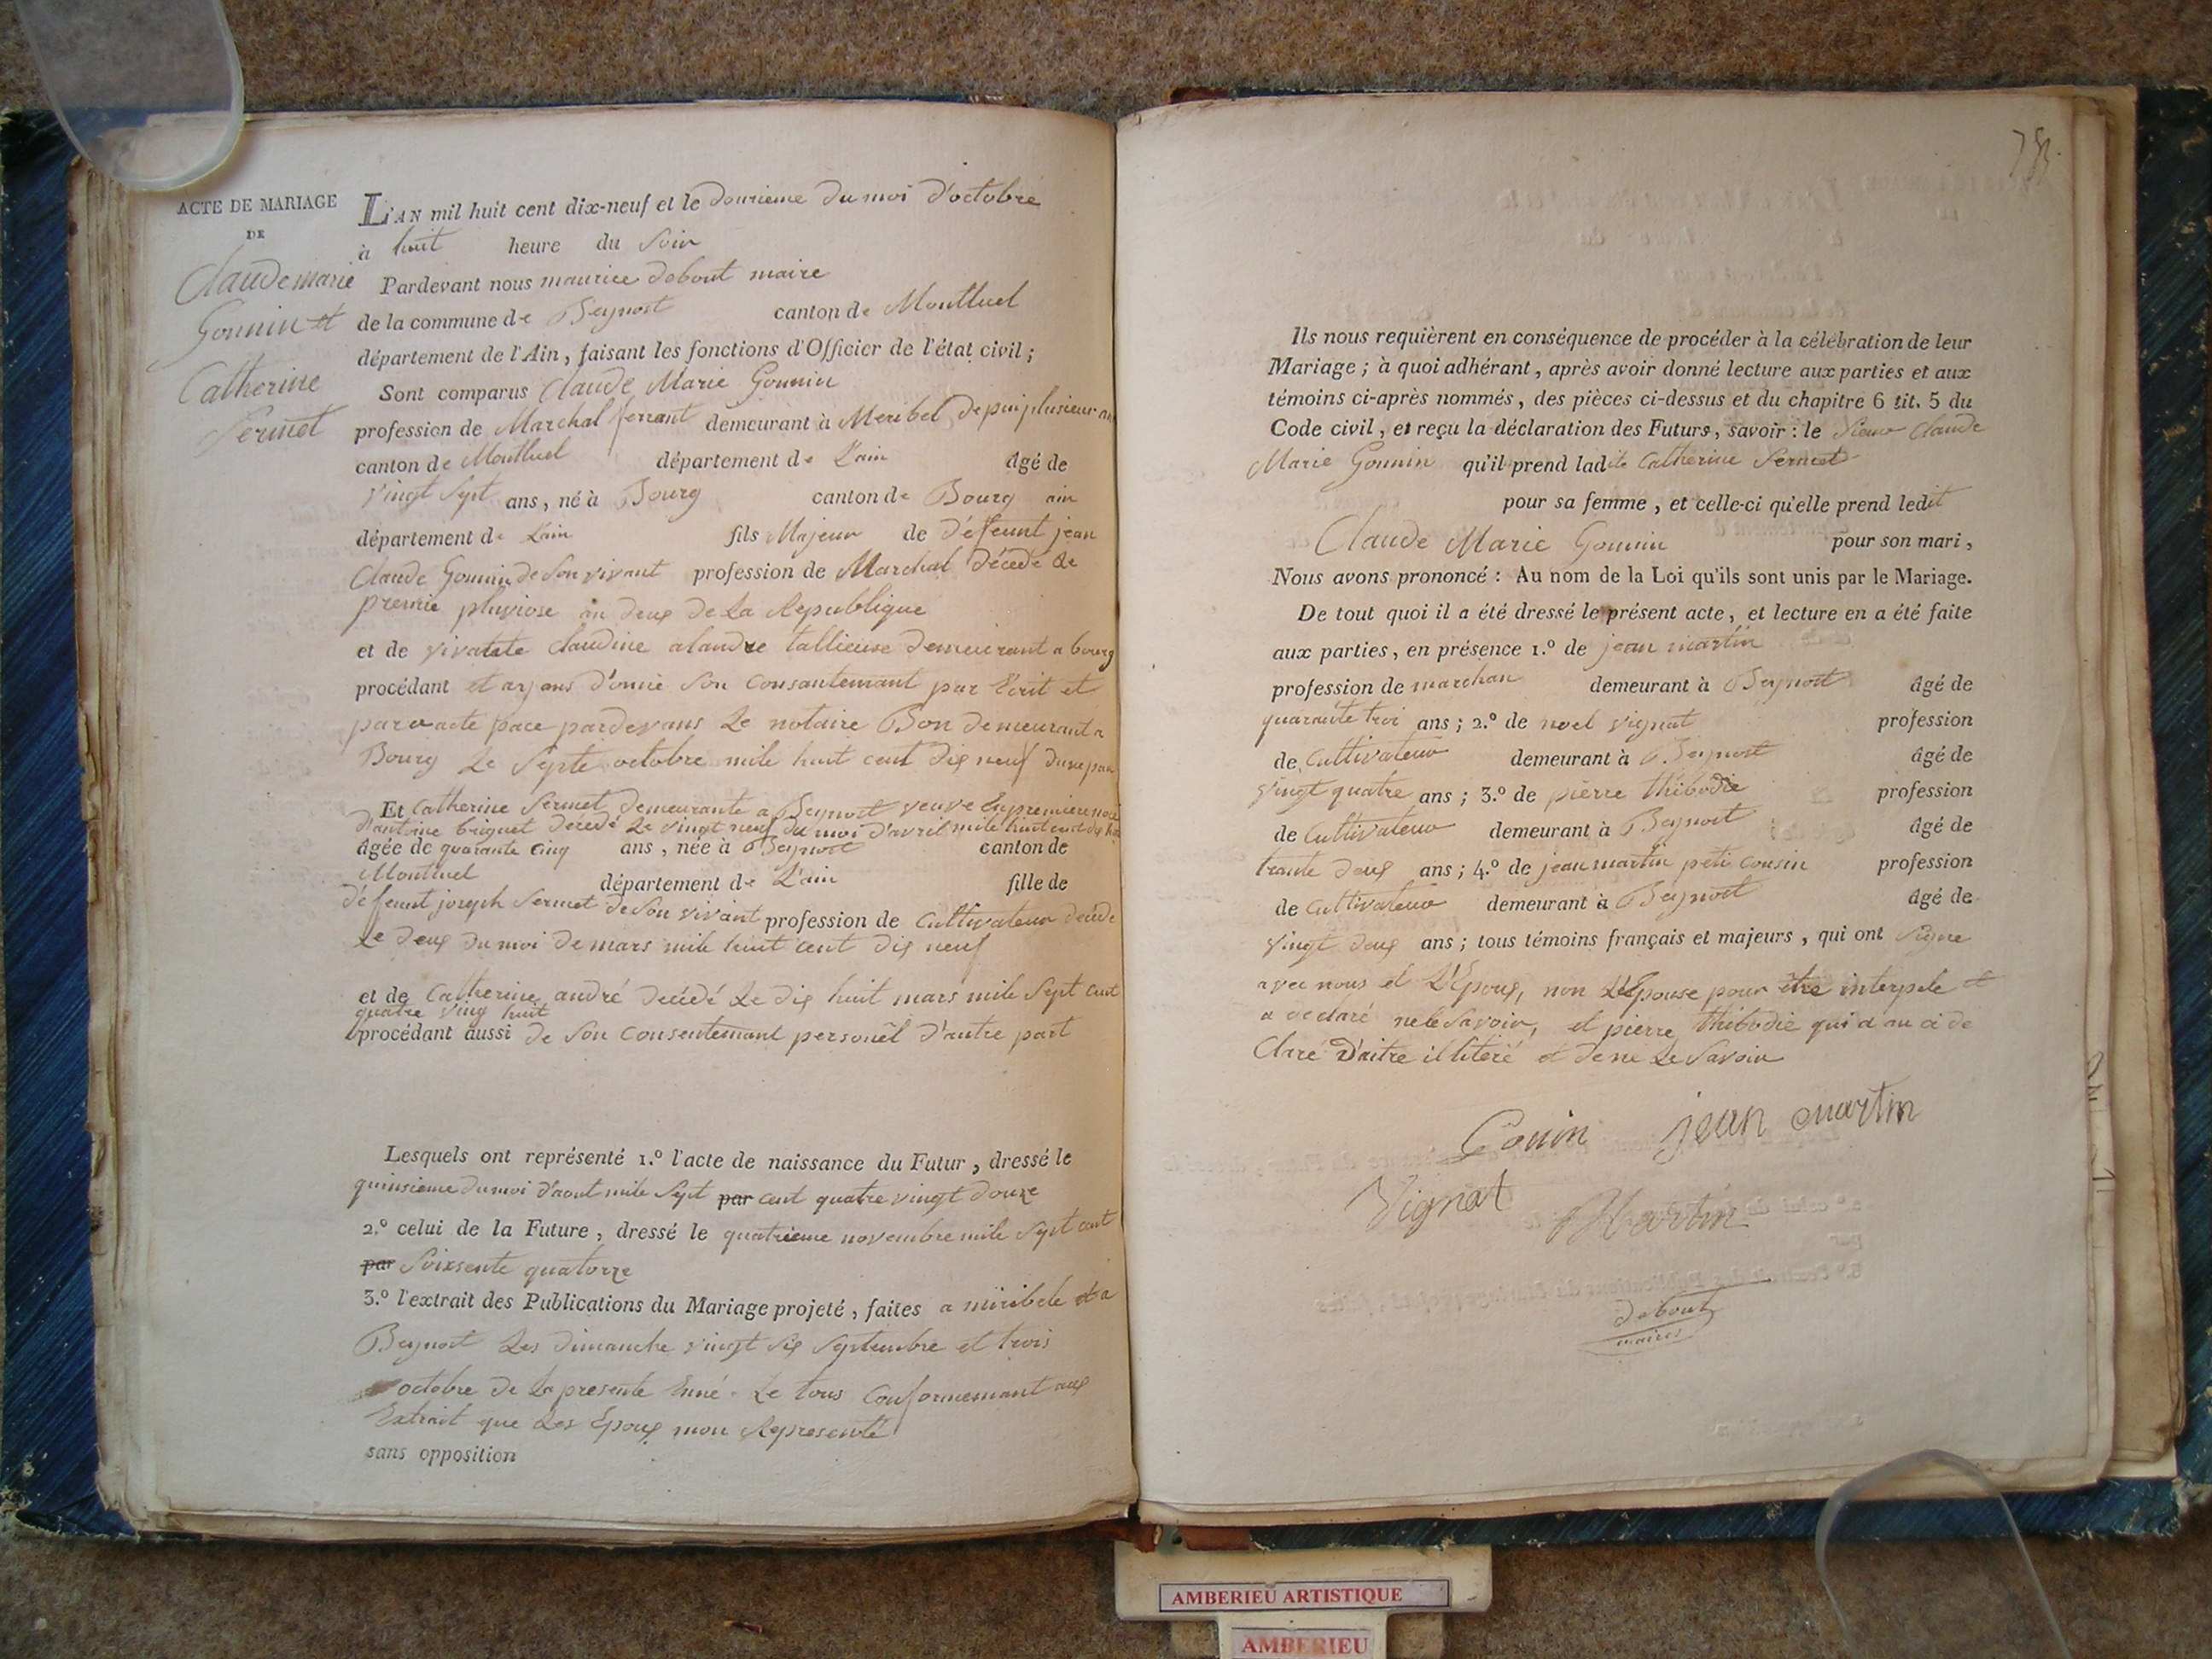 ACTE DE MARIAGE
DE
Claude marie
Gonnin et
Catherine
Sermet
L'AN mil huit cent dix-neuf et le douzieme du moi d'octobre
à huit heure du soir
Pardevant nous maurice debout maire
de la commune de Beynost canton de Montluel
département de l'Ain, faisant les fonctions d'Officier de l'état civil;
Sont comparus Claude Marie Gonnin
profession de Marchal ferrant demeurant à Meribel depui plusieur an
canton de Montluel département de L'ain âgé de
vingt sept ans, né à Bourg canton de Bourg ain
département de L'ain fils Majeur de défeunt jean
Claude Gonnin de son vivant profession de Marchal décédé le
premie pluviose an deux de la Republique
et de vivante Claudine alandre tallieuse demeurant a bourg
procédant et aryans d'onné son consantemant par Ecrit et
par acte pace pardevans le notaire Bon demeurant a
Bourg le septe octobre mile huit cent dix neuf dune par
Et Catherine Sermet demeurante a Beynost veuve En premiere noce
d'antoine briquet décédé le vingt neuf du moi d'avril mile huit cent dix huit
âgée de quarante cinq ans, née à Beynost canton de
Montluel département de L'ain fille de
défeunt joseph Sermet de son vivant profession de Cultivateur décéde
le deux du moi de mars mile huit cent dix neuf
et de Catherine andré décédé le dix huit mars mile sept cent
quatre ving huit
procédant aussi de son consentemant personël d'autre part
Lesquels ont représenté 1.º l'acte de naissance du Futur, dressé le
quinsieme du moi d'aout mile sept par cent quatre vingt douze
2.º celui de la Future, dressé le quatrieme novembre mile sept cent
par Soixsente quatorze
3.º l'extrait des Publications du Mariage projeté, faites a miribele et a
Beynost les dimanche vingt six septembre et trois
octobre de la presente Enné. Le tous Conformemant aux
Extrait que les Epoux mon Representé
sans opposition
Ils nous requièrent en conséquence de procéder à la célébration de leur
Mariage; à quoi adhérant, après avoir donné lecture aux parties et aux
témoins ci-après nommés, des pièces ci-dessus et du chapitre 6 tit. 5 du
Code civil, et reçu la déclaration des Futurs, savoir: le Sieur Claude
Marie Gonnin qu'il prend ladite Catherine Sermet
pour sa femme, et celle-ci qu'elle prend ledit
Claude Marie Gonnin pour son mari,
Nous avons prononcé: Au nom de la Loi qu'ils sont unis par le Mariage.
De tout quoi il a été dressé le présent acte, et lecture en a été faite
aux parties, en présence 1.º de jean martin
profession de marchan demeurant à Beynost âgé de
quarante troi ans; 2.º de noel vignat profession
de Cultivateur demeurant à Beynost âgé de
vingt quatre ans; 3.º de pierre thibodie profession
de Cultivateur demeurant à Beynost âgé de
trante deux ans; 4.º de jean martin peti cousin profession
de Cultivateur demeurant à Beynost âgé de
vingt deux ans; tous témoins français et majeurs, qui ont signe
avec nous et L'Epoux, non L'Epouse pour être interpele et
a declaré ne le savoir, et pierre thibodie qui a au ci de
Claré d'aitre illiteré et de ne le savoir
Gonin jean martin
Vignat Martin
debout
maire
AMBERIEU ARTISTIQUE
AMBERIEU